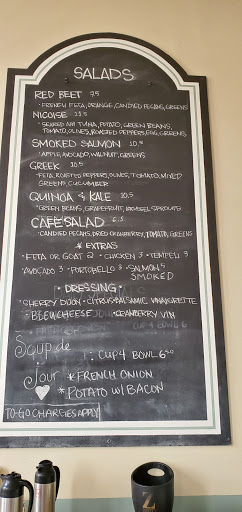 SALADS
RED BEET 9.5
• FRENCH FETA, ORANGE, CANDIED PECANS, GREENS
NICOISE 13.5
• SEARED AHI TUNA, POTATO, GREEN BEANS,
TOMATO, OLIVES, ROASTED PEPPERS, EGG, GREENS
SMOKED SALMON 10.5
• APPLE, AVOCADO, WALNUT, GREENS
GREEK 10.5
• FETA, ROASTED PEPPERS, OLIVES, TOMATO, MIXED
GREENS, CUCUMBER
QUINOA & KALE 10.5
• GREEN BEANS, GRAPEFRUIT, BRUSSEL SPROUTS
CAFE SALAD 6.5
• CANDIED PECANS, DRIED CRANBERRY, TOMATO, GREENS
* EXTRAS
• FETA OR GOAT 2 • CHICKEN 3 • TEMPEH 3
AVOCADO 3 • PORTOBELLO 3 • SALMON 5
SMOKED
• DRESSING •
• SHERRY DIJON • CITRUS • BALSAMIC VINAIGRETTE
• BLEU CHEESE • CRANBERRY VIN
CUP 4 BOWL 6
Soup de : CUP 4 BOWL 6.50
jour * FRENCH ONION
* POTATO W/ BACON
TO-GO CHARGES APPLY
Z